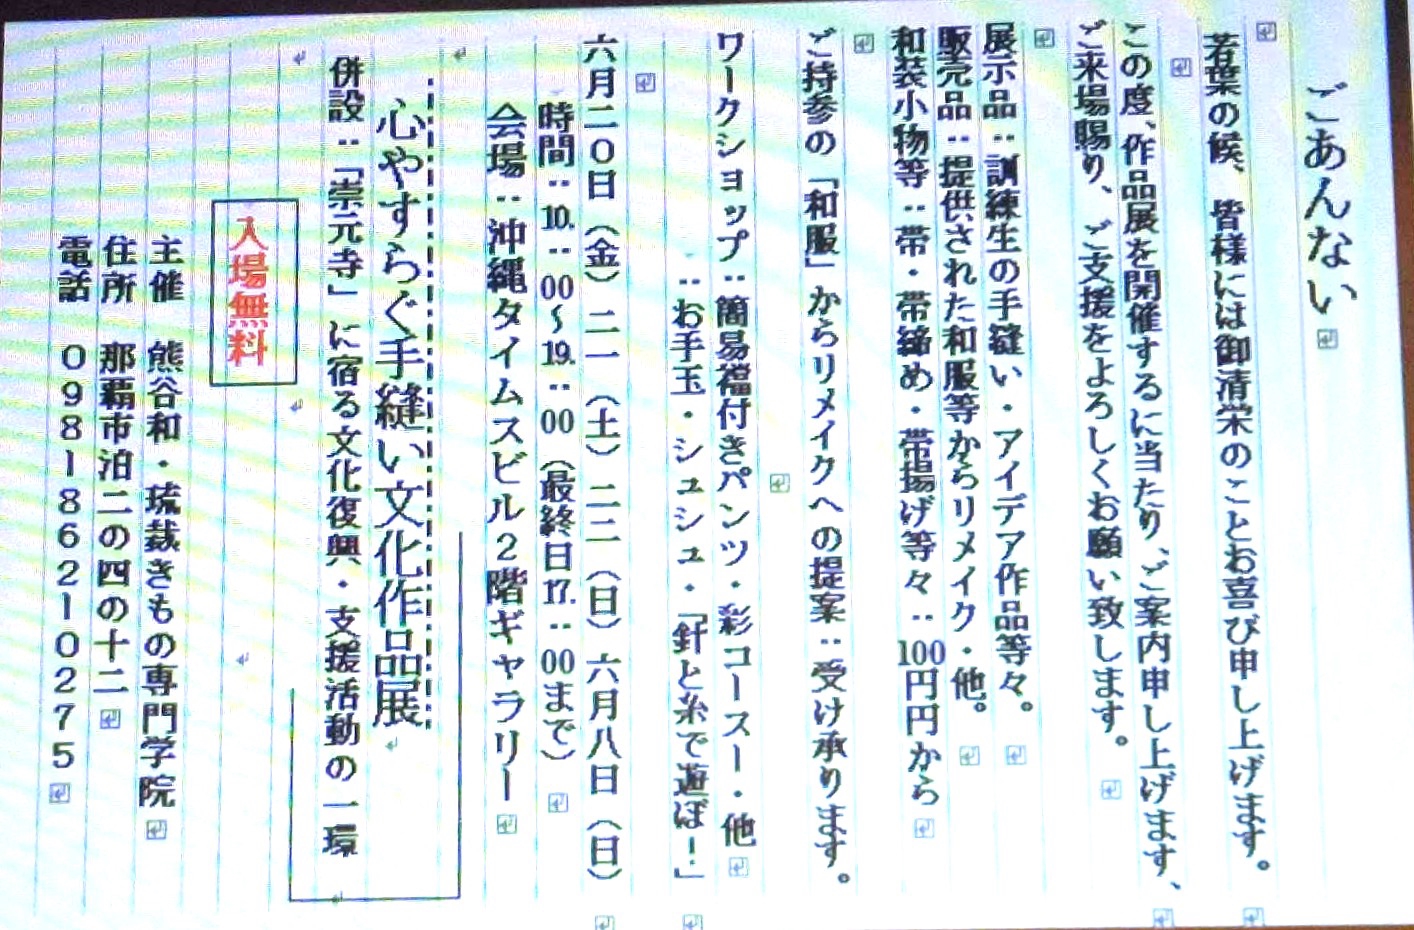 ごあんない
若葉の候、皆様には御清栄のこととお喜び申し上げます。
この度、作品展を開催するに当たり、ご案内申し上げます、
ご来場賜り、ご支援をよろしくお願い致します。
展示品：訓練生の手縫い・アイデア作品等々。
販売品：提供された和服等からリメイク・他。
和装小物等：帯・帯締め・帯揚げ等々：100円円から
ご持参の「和服」からリメイクへの提案：受け承ります。
ワークショップ：簡易襠付きパンツ・彩コースー・他
：お手玉・シュシュ・「針と糸で遊ぼ！」
六月二０日（金）二一（土）二二（日）六月八日（日）
時間：10.：00～19.：00（最終日17.：00まで）
会場：沖縄タイムスビル２階ギャラリー
心やすらぐ手縫い文化作品展
併設：「崇元寺」に宿る文化復興・支援活動の一環
入場無料
主催　熊谷和・琉裁きもの専門学院
住所　那覇市泊二の四の十二
電話　０９８－８６２－０２７５